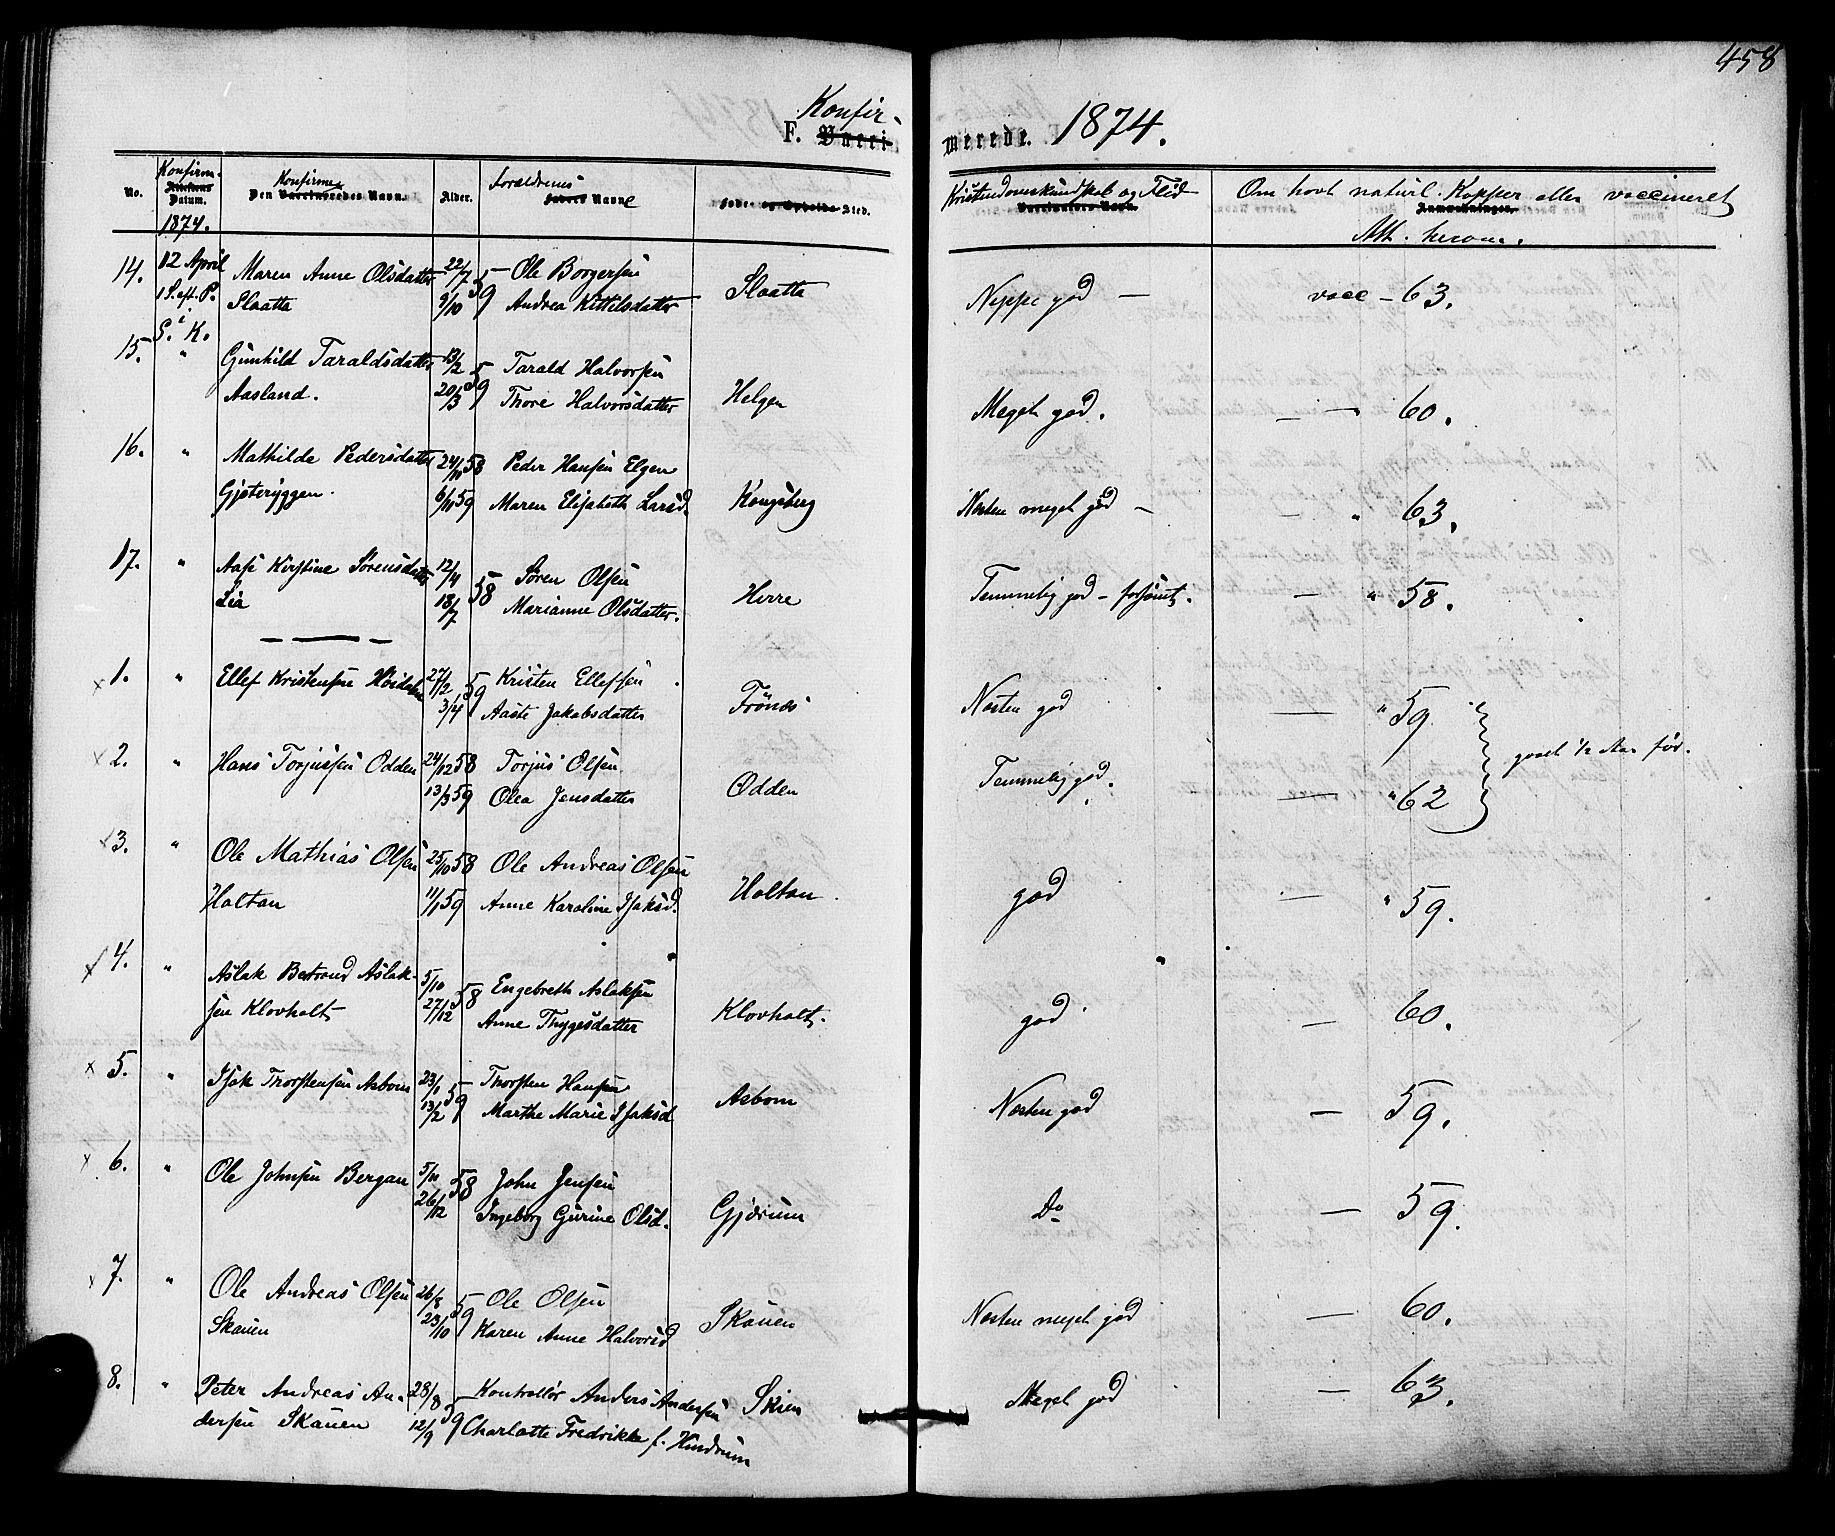 458
Konfir-
F. Vacci merede. 1874.
No. Konfirm. Attestens Datum. Konfirme Den Vaccineredes Navn. Alder. Forældrenes Faders Navne Føde- og Opholds-Sted. Kristendomskundskab og Flid Vaccinators Navn. Om havt naturl. Kopper eller vaccineret
1874. Anmærkninger. Att. herom.
14. 12 April Maren Anne Olsdatter 22/7 59 Ole Borgersen Slaatta Neppe god — vacc - 63.
1 S. eft. P. Slaatta 9/10 Andrea Kittilsdatter
i S. K.
15. " Gunhild Taraldsdatter 13/2 59 Tarald Halvorsen Helgen Meget god. — — 60.
Aasland. 20/3 Thore Halvorsdatter
16. " Mathilde Pedersdatter 24/11 58 Peder Hansen Elgen
Gjsteryggen. 6/11 59 Maren Elisabeth Larsd. Kongsberg Næsten meget god — — " 63.
17. " Aase Kirstine Sørensdatter 12/4 58 Søren Olsen Herre Temmelig god - forsømt. — " 58.
Lia 18/7 Marianne Olsdatter.
1. " Ellef Kristensen Høidalen 27/2 59 Kristen Ellefsen Frönæs Næsten god — " 59.
3/4 Aaste Jakobsdatter
2. " Hans Torjussen Odden 24/12 58 Torjus Olsen Odden Temmelig god. — " 62 gaaet 1/2 Aar før.
13/3 59 Olea Jensdatter
3. " Ole Mathias Olsen 25/10 58 Ole Andreas Olsen Holtan god — " 59.
Holtan 11/1 59 Anne Karoline Isaksd.
4. " Aslak Bertrand Aslak- 5/10 58 Engebreth Aslaksen Klovholt. god. — 60.
sen Klovholt 27/12 Anne Thygesdatter
5. " Isak Thorstensen Asbom 23/1 59 Thorsten Hansen Asbom Næsten god — 59.
13/2 Marthe Marie Isaksd
6. " Ole Johnsen Bergan 5/11 58 John Jensen Gjærum Do — 59.
26/12 Ingeborg Gurine Olsd.
7. " Ole Andreas Olsen 26/8 59 Ole Olsen Skauen Næsten meget god — 60.
Skauen 23/10 Karen Anne Halvorsd
8. " Peter Andreas An- 28/8 59 Kontrollør Anders Andersen Skien Meget god — 63.
dersen Skauen 12/9 Charlotte Fredrikke f. Hindrum